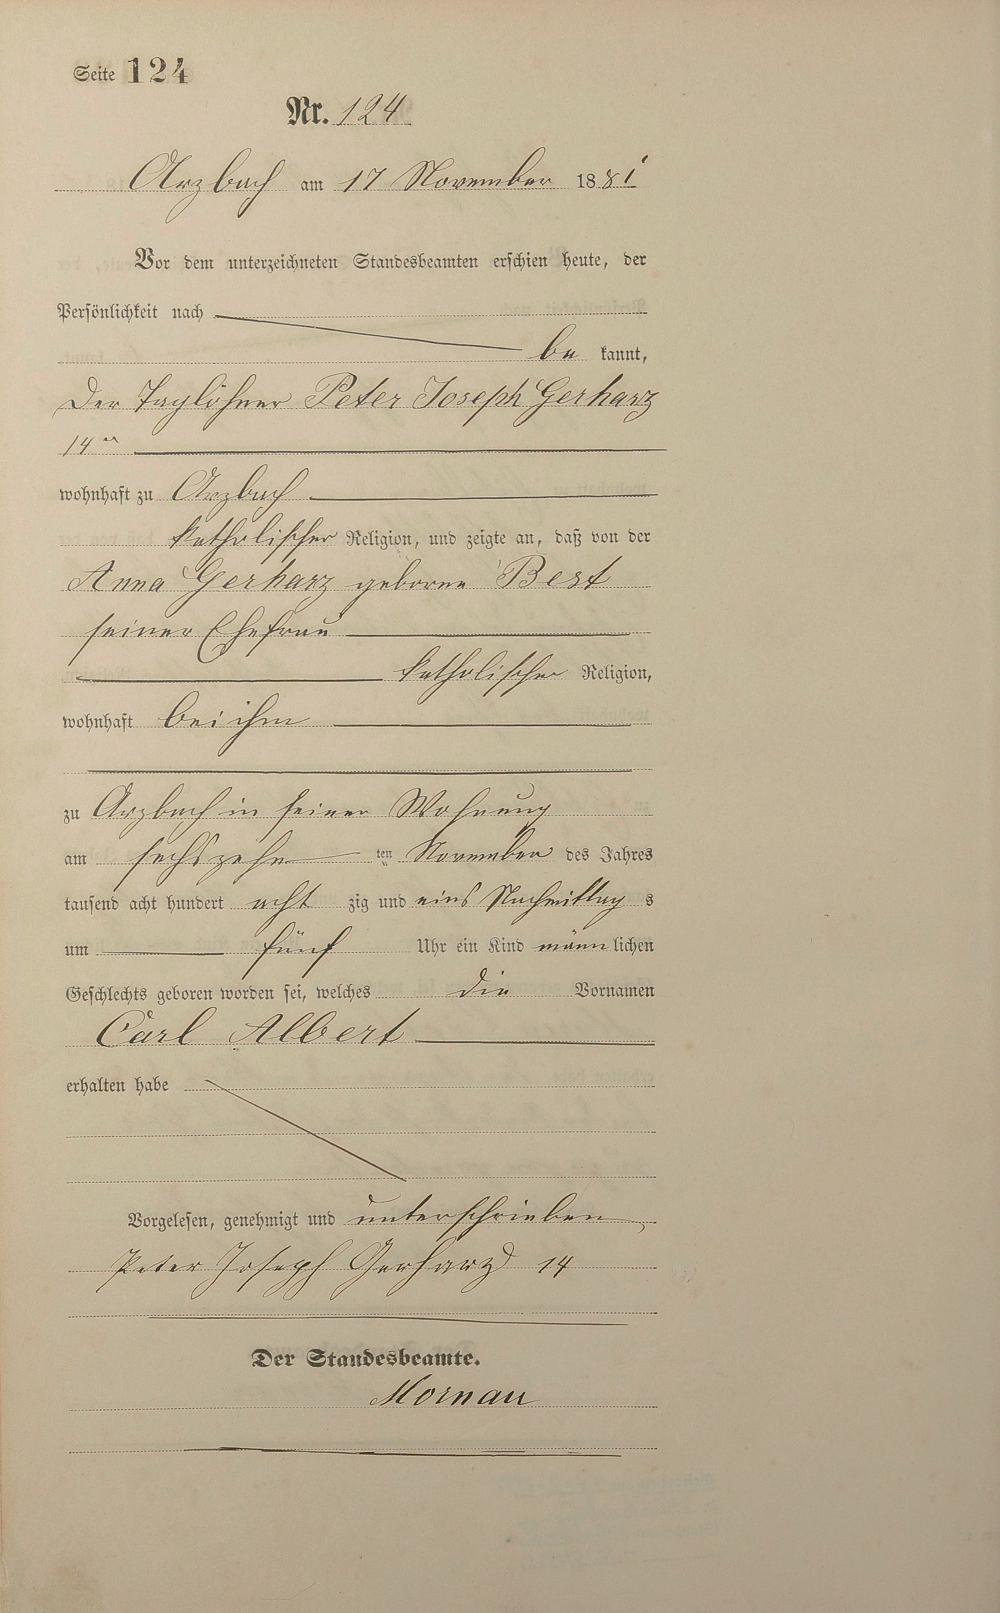 Seite 124
Nr. 124
Arzbach am 17 November 1881
Vor dem unterzeichneten Standesbeamten erschien heute, der
Persönlichkeit nach
be kannt,
Der Taglöhner Peter Joseph Gerharz
14er
wohnhaft zu Arzbach
katholischer Religion, und zeigte an, daß von der
Anna Gerharz geborne Best
seiner Ehefrau
katholischer Religion,
wohnhaft bei ihm
zu Arzbach in seiner Wohnung
am sechszehn ten November des Jahres
tausend acht hundert acht zig und eins Nachmittag s
um fünf Uhr ein Kind männlichen
Geschlechts geboren worden sei, welches die Vornamen
Carl Albert
erhalten habe
Vorgelesen, genehmigt und unterschrieben
Peter Joseph Gerharz 14
Der Standesbeamte.
Mornau